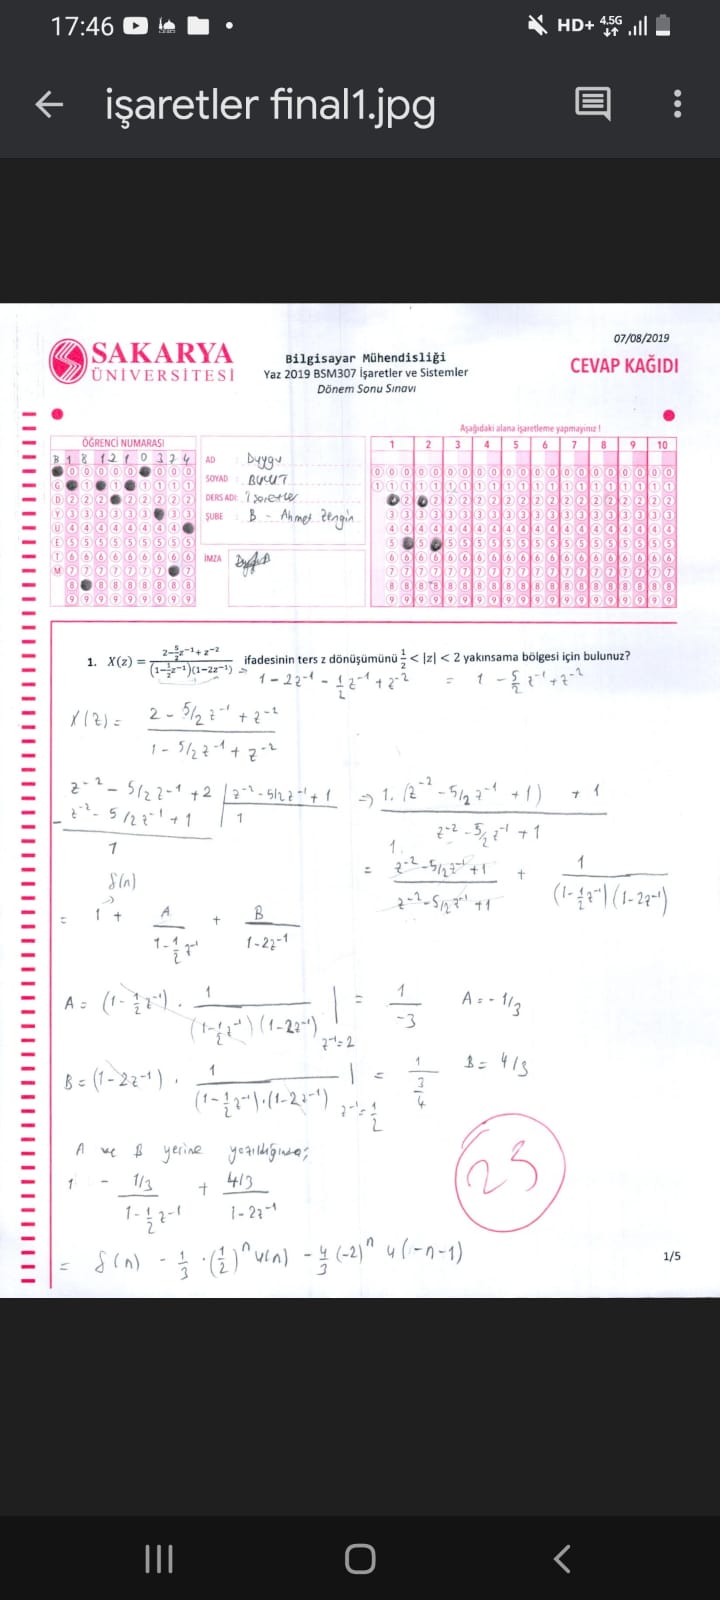 17:46
HD+ 4.5G
işaretler final1.jpg
07/08/2019
SAKARYA
ÜNİVERSİTESİ
Bilgisayar Mühendisliği
Yaz 2019 BSM307 İşaretler ve Sistemler
Dönem Sonu Sınavı
CEVAP KAĞIDI
Aşağıdaki alana işaretleme yapmayınız !
ÖĞRENCİ NUMARASI
B 1 8 1 2 1 0 3 7 4
AD : Duygu
SOYAD : BULUT
DERS ADI: İşaretler
ŞUBE : B - Ahmet Zengin
İMZA
1 2 3 4 5 6 7 8 9 10
1. X(z) = (2-5/2z⁻¹+z⁻²)/((1-1/2z⁻¹)(1-2z⁻¹)) ifadesinin ters z dönüşümünü 1/2 < |z| < 2 yakınsama bölgesi için bulunuz?
1 - 2z⁻¹ - 1/2 z⁻¹ + z⁻² = 1 - 5/2 z⁻¹ + z⁻²
X(z) = (2 - 5/2 z⁻¹ + z⁻²)/(1 - 5/2 z⁻¹ + z⁻²)
z⁻² - 5/2 z⁻¹ + 2 | z⁻² - 5/2 z⁻¹ + 1 ⇒ (1.(z⁻² - 5/2 z⁻¹ + 1) + 1)/(z⁻² - 5/2 z⁻¹ + 1)
- z⁻² - 5/2 z⁻¹ + 1 | 1
1
= 1. (z⁻² - 5/2 z⁻¹ + 1)/(z⁻² - 5/2 z⁻¹ + 1) + 1/((1 - 1/2 z⁻¹)(1 - 2z⁻¹))
δ(n)
= 1 + A/(1 - 1/2 z⁻¹) + B/(1 - 2z⁻¹)
A = (1 - 1/2 z⁻¹) . 1/((1 - 1/2 z⁻¹)(1 - 2z⁻¹)) | z⁻¹=2 = 1/-3 A = - 1/3
B = (1 - 2z⁻¹) . 1/((1 - 1/2 z⁻¹).(1 - 2z⁻¹)) | z⁻¹=1/2 = 1/(3/4) B = 4/3
A ve B yerine yazıldığında;
1 - (1/3)/(1 - 1/2 z⁻¹) + (4/3)/(1 - 2z⁻¹)
23
= δ(n) - 1/3 . (1/2)ⁿ u(n) - 4/3 (-2)ⁿ u(-n-1)
1/5